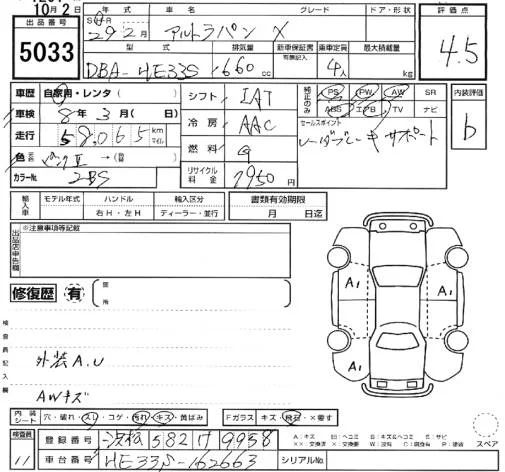 10月2日
出品番号 5033
年式 車名 グレード ドア・形状 評価点
29 2月 アルトラパン X 4.5
型式 排気量 新車保証書 乗車定員 最大積載量
DBA-HE33S 660cc 有無記入 4人 kg
車歴 自家用・レンタ( )
車検 8年3月( 日)
走行 58,065 km マイル
色
カラーNo. ZBS
シフト IAT
冷房 AAC
燃料 G
リサイクル料金 7950円
純正のみ PS PW AW SR
ABS エアB TV ナビ
内装評価 b
セールスポイント
レーダーブレーキサポート
輸入車 モデル年式 ハンドル 輸入区分 書類有効期限
右H・左H ディーラー・並行 月 日迄
出品店申告欄 ※注意事項等記載
修復歴 有 箇所
検査員記入欄
外装A.U
AWキズ
A1 A1
内装シート 穴・破れ・スレ・コゲ・汚れ・キズ・黄ばみ
Fガラス キズ・飛石・×要す
スペア
検査員 11
登録番号 浜松 582 9958
車台番号 HE33S-162663 シリアルNo.
A:キズ U:ヘコミ B:キズ&ヘコミ S:サビ
××:交換済 ×:要交換 W:波有 C:腐食有 P:塗装